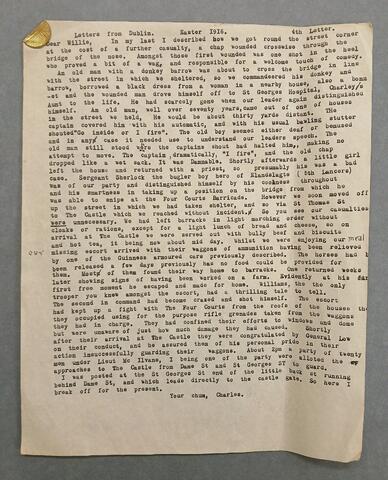 Letters from Dublin. Easter 1916. 4th Letter.
Dear Willie, In my last I described how we got round the street corner
at the cost of a further casualty, a chap wounded crosswise through the
bridge of the nose. Amongst those first wounded was one shot in the heel
who proved a bit of a wag, and responsible for a welcome touch of comedy.
An old man with a donkey barrow was about to cross the bridge in line
with the street in which we sheltered, so we commandeered his donkey and
barrow, borrowed a black dress from a woman in a nearby house, also a bonn
-et and the wounded man drove himself off to St Georges Hospital, Charley's
Aunt to the life. He had scarcely gone when our leader again distinguished
himself. An old man, well over seventy years, came out of one of houses
in the street we held. He would be about thirty yards distant. The
captain covered him with his automatic, and with his usual bawling stutter
shouted"Go inside or I fire". The old boy seemed either deaf or bemused
and in any case it needed use to understand our leaders speech. The
old man still stood were the captains shout had halted him, making no
attempt to move. The captain, dramatically, "I fire", and the old chap
dropped like a wet sack. It was Damnable. Shortly afterwards a little girl
left the house and returned with a priest, so presumably his was a bad
case. Sergeant Sherlock the bugler boy hero of Elandslagte (5th Lancers)
was of our party and distinguished himself by his coolness throughout
and his smartness in taking up a position on the bridge from which he
was able to snipe at the Four Courts Barricade. However we soon moved off
up the street in which we had taken shelter, and so via St Thomas St
to The Castle which we reached without incident. So you see our casualties
were unnecessary. We had left barracks in light marching order without
cloaks or rations, except for a light lunch of bread and cheese, so on
arrival at The Castle we were served out with bully beef and biscuits
and hot tea, it being now about mid day. Whilst we were enjoying our meal
our missing escort arrived with their waggons of ammunition having been relieved
by one of the Guinness armoured cars previously described. The horses had
been released a few days previously as no food could be provided for
them. Mostly of them found their way home to barracks. One returned weeks
later showing signs of having been worked on a farm. Evidently at his
first free moment he escaped and made for home. Williams, the only
trooper you knew amongst the escort, had a thrilling tale to tell.
The second in command had become crazed and shot himself. The escort
had kept up a fight with The Four Courts from the roofs of the houses
they occupied using for the purpose rifle grenades taken from the waggons
they had in charge. They had confined their efforts to windows and dome
but were unaware of just how much damage they had caused. Shortly
after their arrival at The Castle they were congratulated by General Low
on their conduct, and he assured them of his personal pride in their
action insuccessfully guarding their waggons. About 2pm a party of twenty
men under Lieut Mc Ilvane, I being one of the party were alloted the
approaches to The Castle from Dame St and St Georges ST to guard.
I was posted at the St Georges St end of the little back st running
behind Dame St, and which leads directly to the castle gate. So here I
break off for the present.
Your chum, Charles.